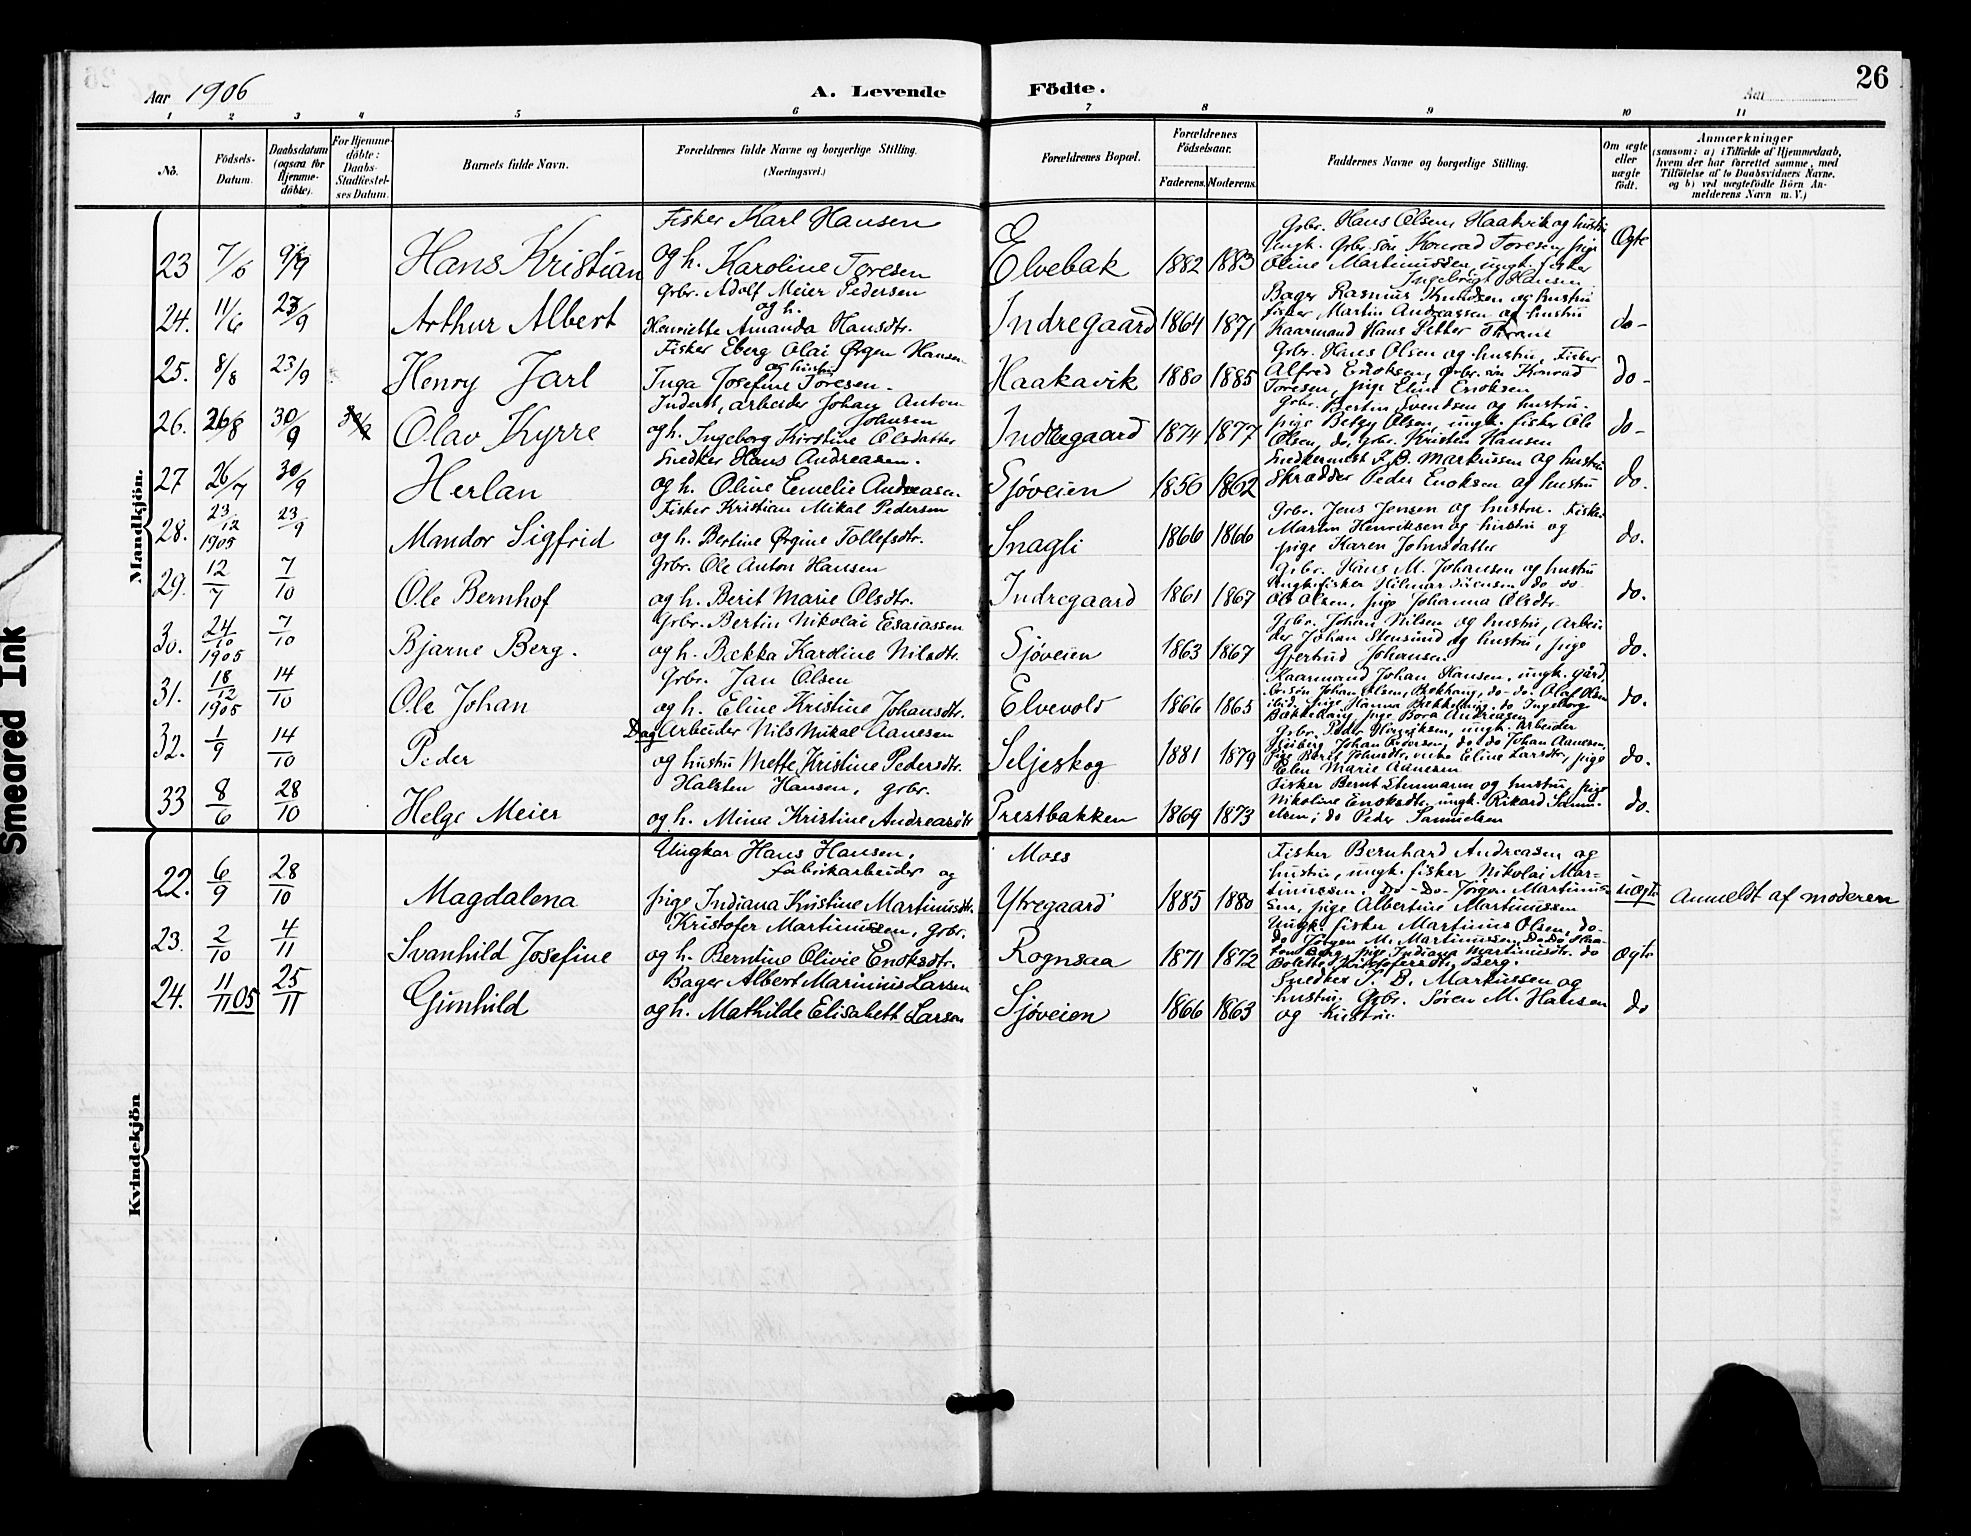 Aar 1906
A. Levende Födte.
Aar
26
1 2 3 4 5 6 7 8 9 10 11
No.
Födsels-Datum.
Daabsdatum (ogsaa for Hjemme-döbte).
For Hjemme-döbte: Daabs-Stadfæstel-ses Datum.
Barnets fulde Navn.
Forældrenes fulde Navne og borgerlige Stilling. (Næringsvei.)
Forældrenes Bopæl.
Forældrenes Födselsaar.
Faderens. Moderens.
Faddernes Navne og borgerlige Stilling.
Om ægte eller uægte födt.
Anmærkninger
(saasom: a) i Tilfælde af Hjemmedaab,
hvem der har forrettet samme, med
Tilföielse af to Daabsvidners Navne.
og b) ved uægtefödte Börn An-
melderens Navn m. V.)
Mandkjön.
23 7/6 9/9 Hans Kristian
Fisker Karl Hansen
og h. Karoline Toresen
Elvebak 1882 1883
Grbr. Hans Olsen Haakvik og hustru
Ungk. Grbr. søn Konrad Toresen, pige
Oline Martinussen, ungk. fisker
Ingebrigt Hansen
Ægte
24. 11/6 23/9 Arthur Albert
Grbr. Adolf Meier Pedersen
og h.
Henriette Amanda Hansdtr.
Indregaard 1864 1871
Bager Rasmus Knudsen og hustru
fisker Martin Andreassen og hustru
Kaarmand Hans Petter Thrane
do-
25. 8/8 23/9 Henry Jarl
Fisker Eberg Olai Ørgen Hansen
og hustru
Inga Josefine Toresen.
Haakavik 1880 1885
Grbr. Hans Olsen og hustru, Fisker
Alfred Enoksen, grbr. søn Konrad
Toresen, pige Eline Enoksen
do-
26. 26/8 30/9 Olav Kyrre
Inderst, arbeider Johan Anton
Johansen
og h. Ingeborg Kirstine Olsdatter
Indregaard 1874 1877
Grbr. Bertin Svendsen og hustru.
pige Betzy Olsen, ungk. fisker Ole
Olsen, do, grbr. Kristen Hansen
do-
27 26/7 30/9 Herlan
Snedker Hans Andreasen.
og h. Oline Emelie Andreasen.
Sjøveien 1856 1862
Snedkermest. J. B. Markussen og hustru
Skrædder Peder Enoksen og hustru
do.
28. 23/12 1905 23/9 Mandor Sigfrid
Fisker Kristian Mikal Pedersen
og h. Bertine Ørgine Tollefsdtr.
Snagli 1866 1866
Grbr. Jens Jensen og hustru. Fisker
Martin Henriksen og hustru og
pige Karen Johnsdatter
do.
29. 12/7 7/10 Ole Bernhof
Grbr. Ole Anton Hansen
og h. Berit Marie Olsdtr.
Indregaard 1861 1867
Grbr. Hans M. Johansen og hustru
Ungk. fisker Hilmar Sørensen do do
Ole Olsen, pige Johanna Olsdtr.
do.
30. 24/10 1905 7/10 Bjarne Berg.
Grbr. Bertin Nikolai Esaiassen
og h. Bækka Kardine Nilsdtr.
Sjøveien 1863 1867
Grbr. Johan Nilsen og hustru, Arbei
der Johan Stensund og hustru, pige
Gjertrud Johansen
do.
31. 18/12 1905 14/10 Ole Johan
Grbr. Jan Olsen
og h. Eline Kristine Johansdtr.
Elvevold 1866 1865
Kaarmand Johan Hansen, ungk. gård
br. søn Johan Olsen, Bækhaug, do-do. Olaf Olsen
ibid. pige Hanna Bækkehaug, do Ingeborg
Bakkehaug, pige Bora Andreasen
do.
32. 1/9 14/10 Peder
Dag Arbeider Nils Mikal Aanesen
og hustru Mette Kristine Pedersdtr.
Seljeskog 1881 1879
Grbr. Peder Henriksen, ungk. arbeider
Johan Pedersen, do do Johan Aanesen,
pige Berit Johnsdtr., enke Eline Larsdtr, pige
Elen Marie Aanesen
do.
33 8/6 28/10 Helge Meier
Halsten Hansen, grbr.
og h. Mina Kristine Andreasdtr
Prestbakken 1869 1873
Fisker Bernt Steinmann og hustru, pige
Nikoline Enoksdtr, ungk. Rikard Samu-
elsen, do Peder Samuelsen
do.
Kvindekjön
22. 6/9 28/10 Magdalena
Ungkar Hans Hansen,
fabrikarbeider og
pige Indiana Kristine Martinusdtr.
Moss
Ytregaard 1885 1880
Fisker Bernhard Andreasen og
hustru, ungk. fisker Nikolai Mar-
tinussen, Do-Do- Jørgen Martinus-
sen, pige Albertine Martinussen
uægte
Anmeldt af moderen
23. 2/10 4/11 Svanhild Josefine
Kristofer Martinussen, grbr.
og h. Berntine Olivie Enoksdtr.
Rognsaa 1871 1872
Ungk. fisker Martinus Olsen, do-
do Jørgen M. Martinussen, Do Do
Berg, pige Indiana Martinusdtr. do
Bolette Kristofersdtr. Berg.
ægte
24. 11/11 05 25/11 Gunhild
Bager Albert Marinius Larsen
og h. Mathilde Elisabeth Larsen
Sjøveien 1866 1863
Snedker J. B. Markussen og
hustru. Grbr. Søren M. Hansen
og hustru.
do
Smeared Ink